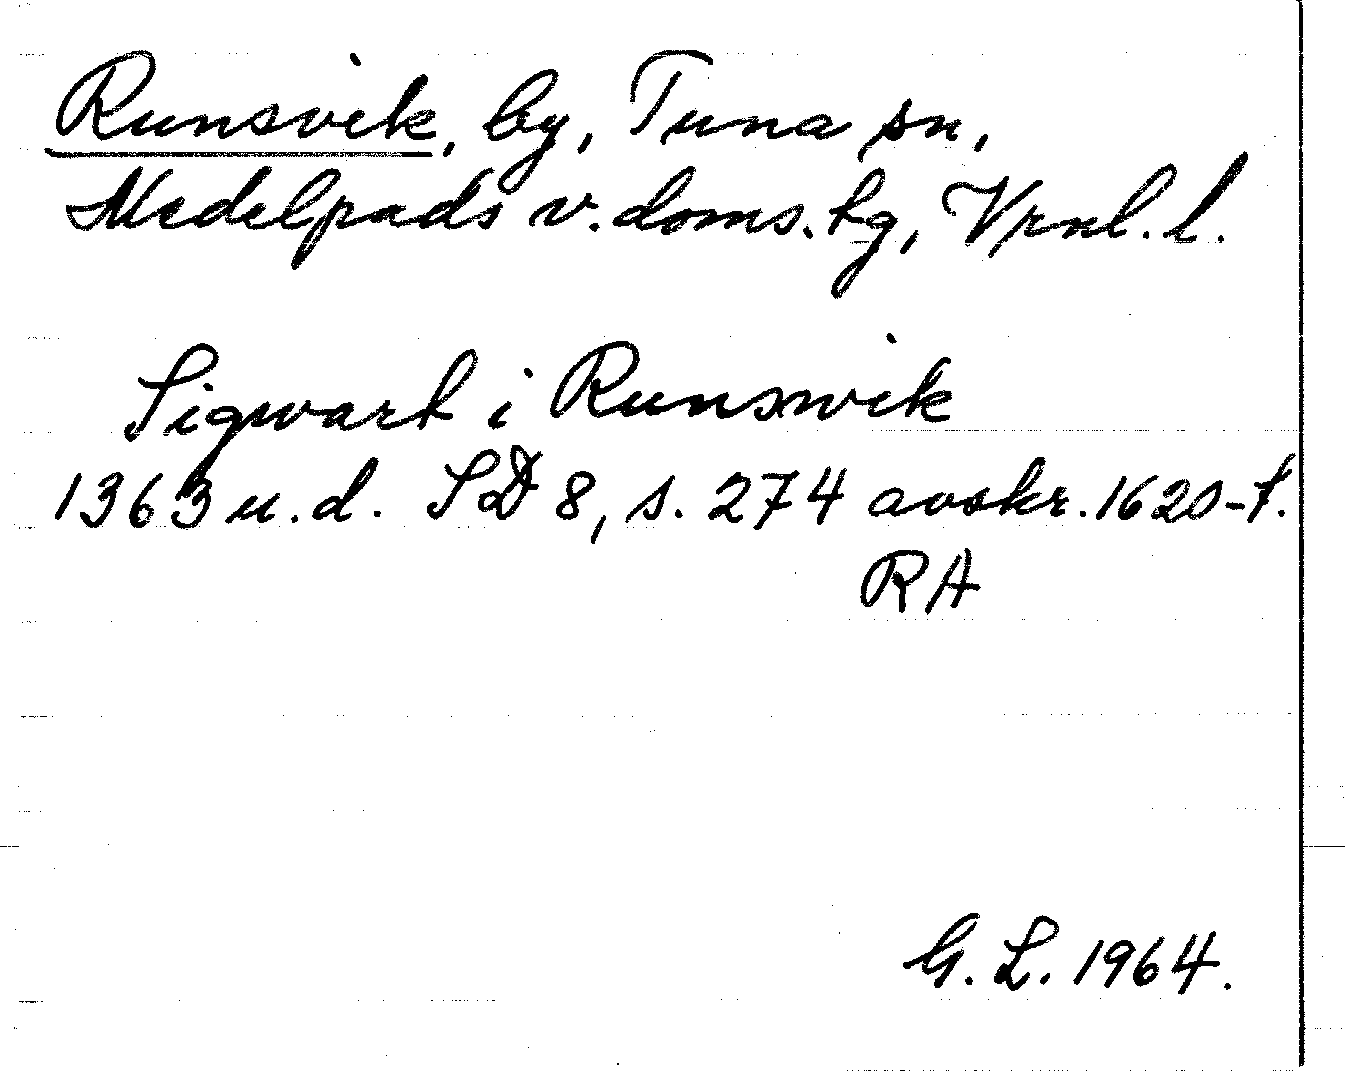 Runsvik, by, Tuna sn,
Medelpads v. doms.tg, Vrnl. l.
Sigwart i Runswik
1363 u.d. SD 8, s. 274 avskr. 1620-t.
RA
G. L. 1964.